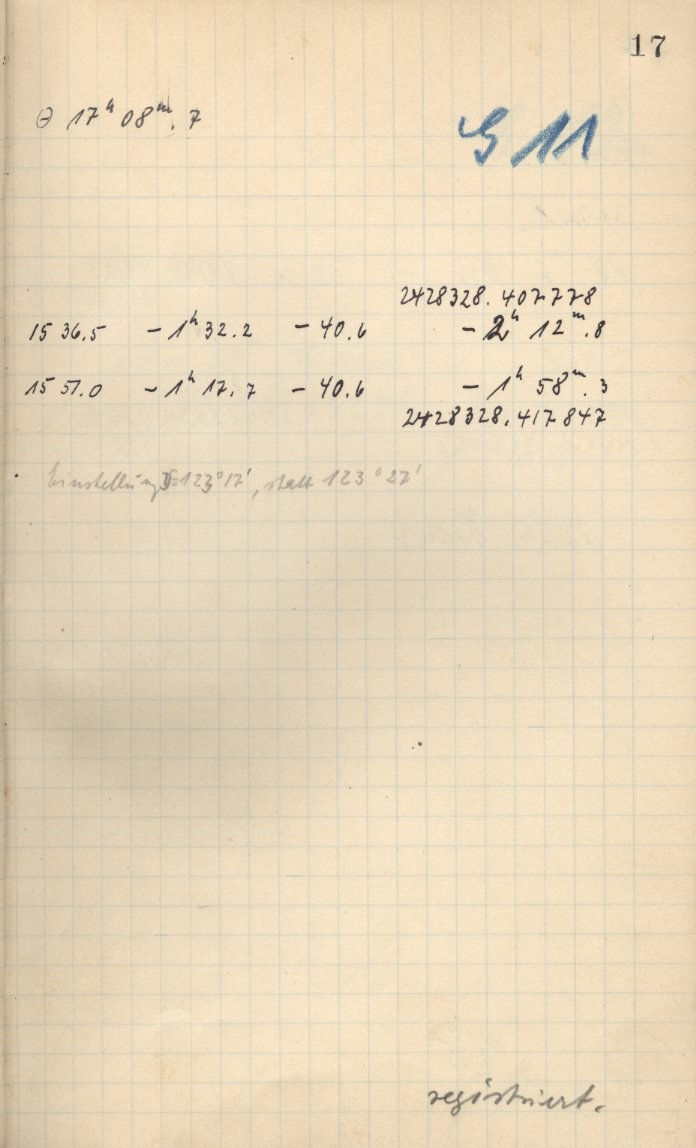 17
θ 17ʰ 08ᵐ.7
G 11
2428328.407778
15 36.5 – 1ʰ 32.2 – 40.6 – 2ʰ 12ᵐ.8
15 51.0 – 1ʰ 17.7 – 40.6 – 1ʰ 58ᵐ.3
2428328.417847
Einstellung D=123°17', statt 123°27'
registriert.